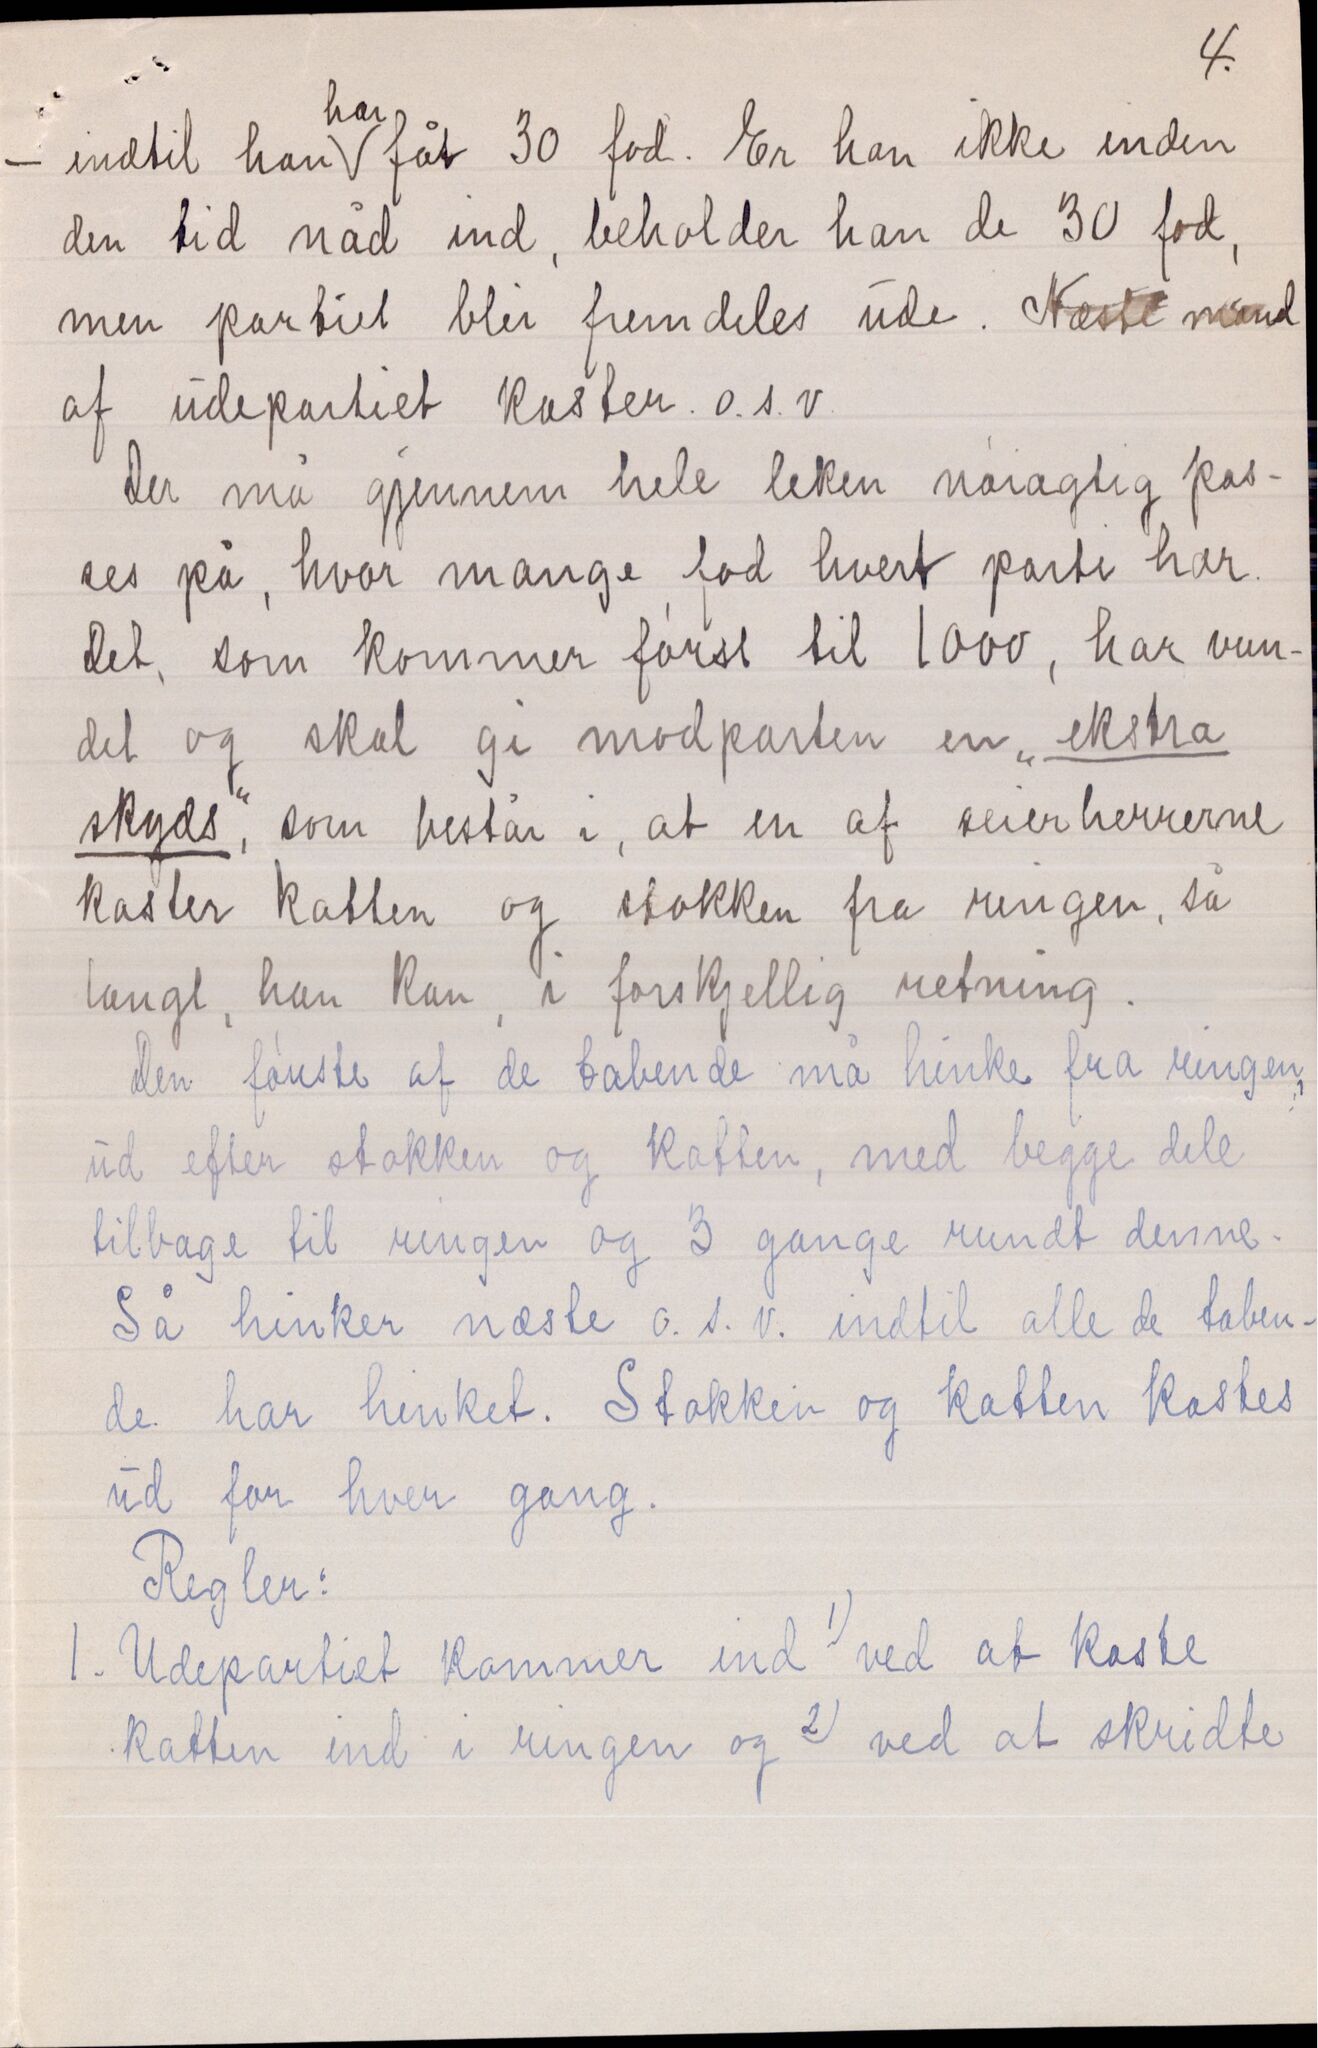 4.
– indtil han har fåt 30 fod. Er han ikke inden
den tid nåd ind, beholder han de 30 fod,
men partiet blir fremdeles ude. Næste mand
af udepartiet kaster. o.s.v.
Der må gjennem hele leken nöiagtig pas-
ses på, hvor mange fod hvert parti har.
Det, som kommer först til 1000, har vun-
det og skal gi modparten en „ekstra
skyds“, som består i, at en af seierherrerne
kaster katten og stokken fra ringen, så
langt, han kan, i forskjellig retning.
Den förste af de tabende må hinke fra ringen,
ud efter stokken og katten, med begge dele
tilbage til ringen og 3 gange rundt denne.
Så hinker næste o. s. v. indtil alle de taben-
de har hinket. Stokken og katten kastes
ud for hver gang.
Regler:
1. Udepartiet kommer ind 1) ved at kaste
katten ind i ringen og 2) ved at skridte